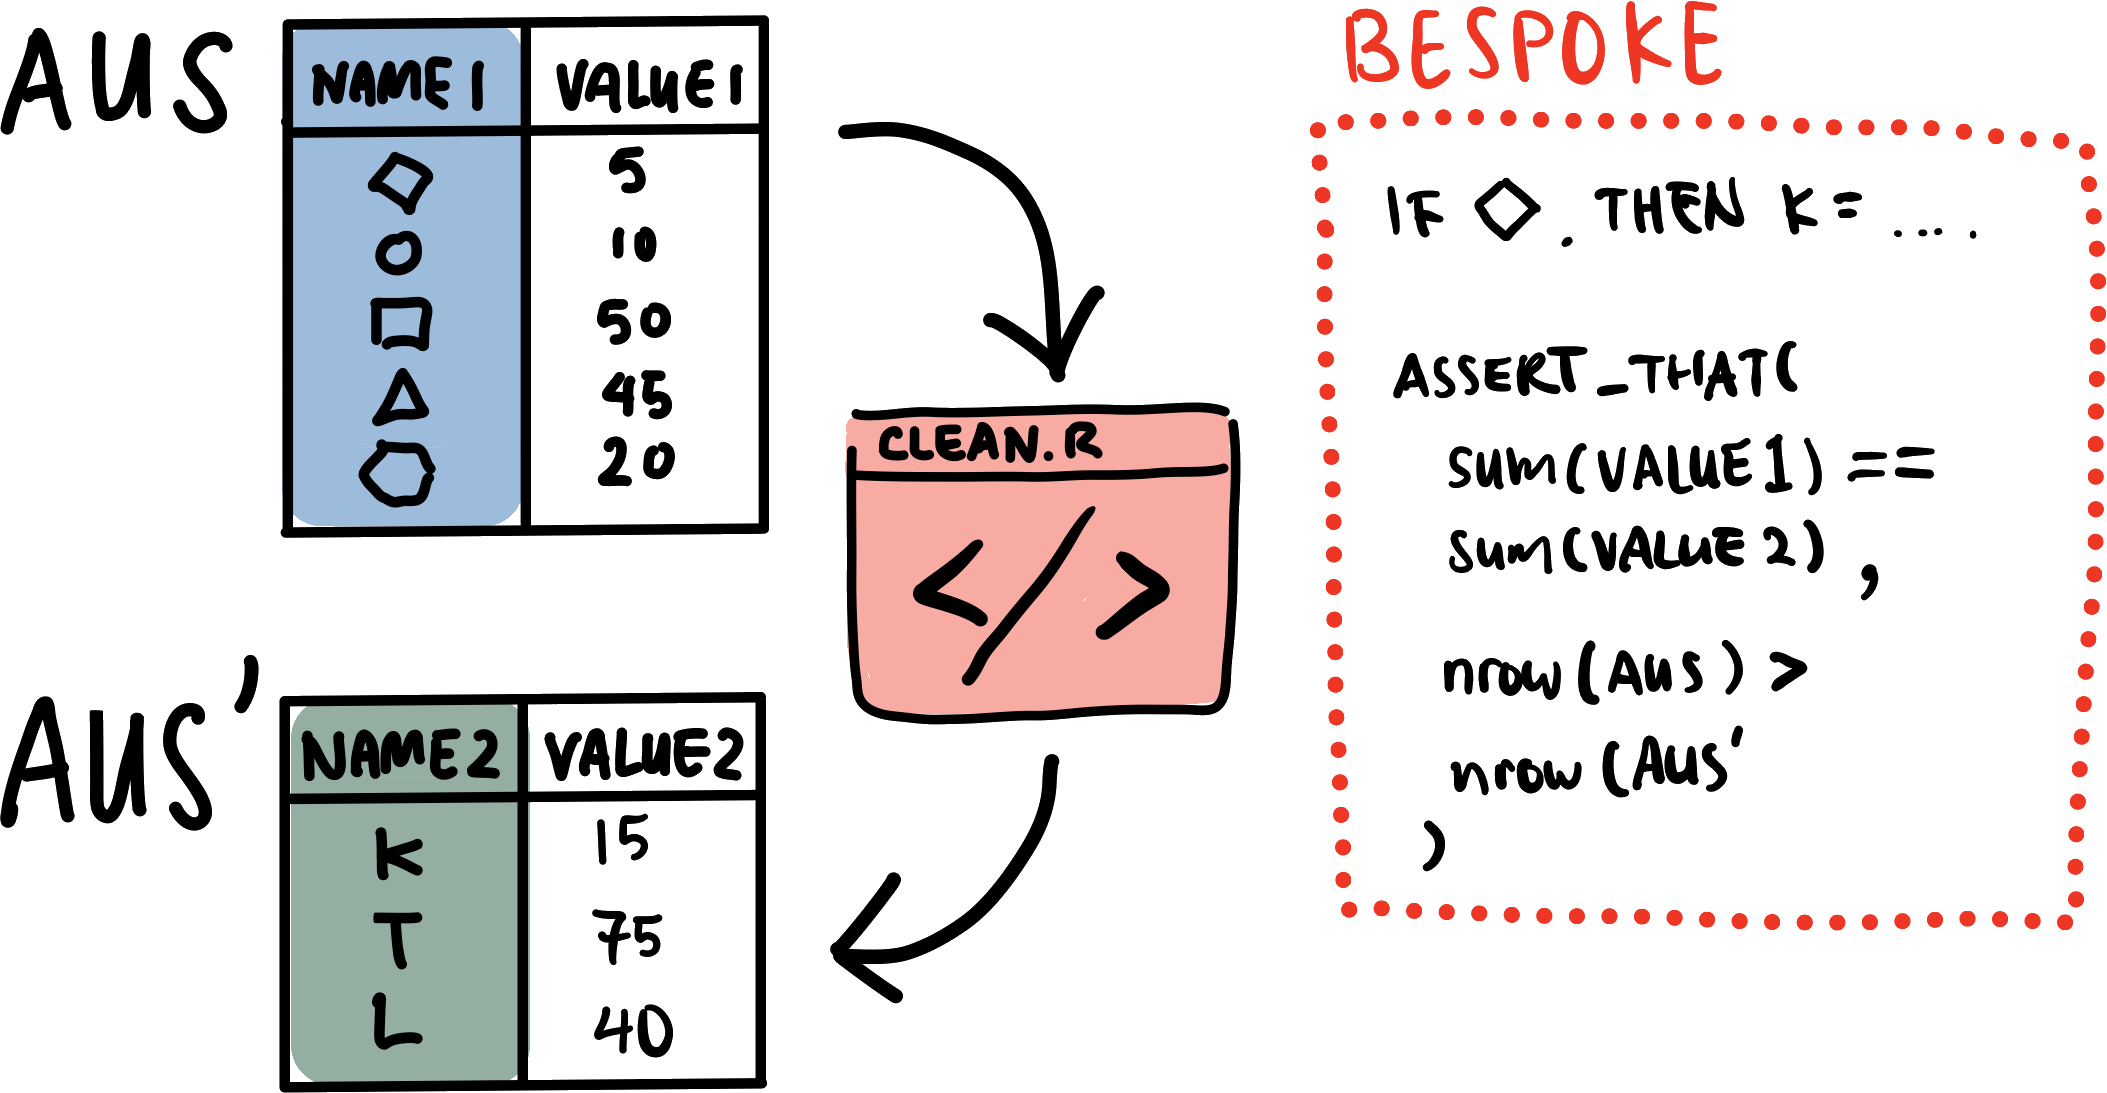 AUS
NAME1 VALUE1
5
10
50
45
20
CLEAN.R
</>
AUS'
NAME2 VALUE2
K 15
T 75
L 40
BESPOKE
IF ◇. THEN K = ....
ASSERT_THAT(
sum(VALUE1) ==
sum(VALUE2),
nrow(AUS) >
nrow(AUS'
)